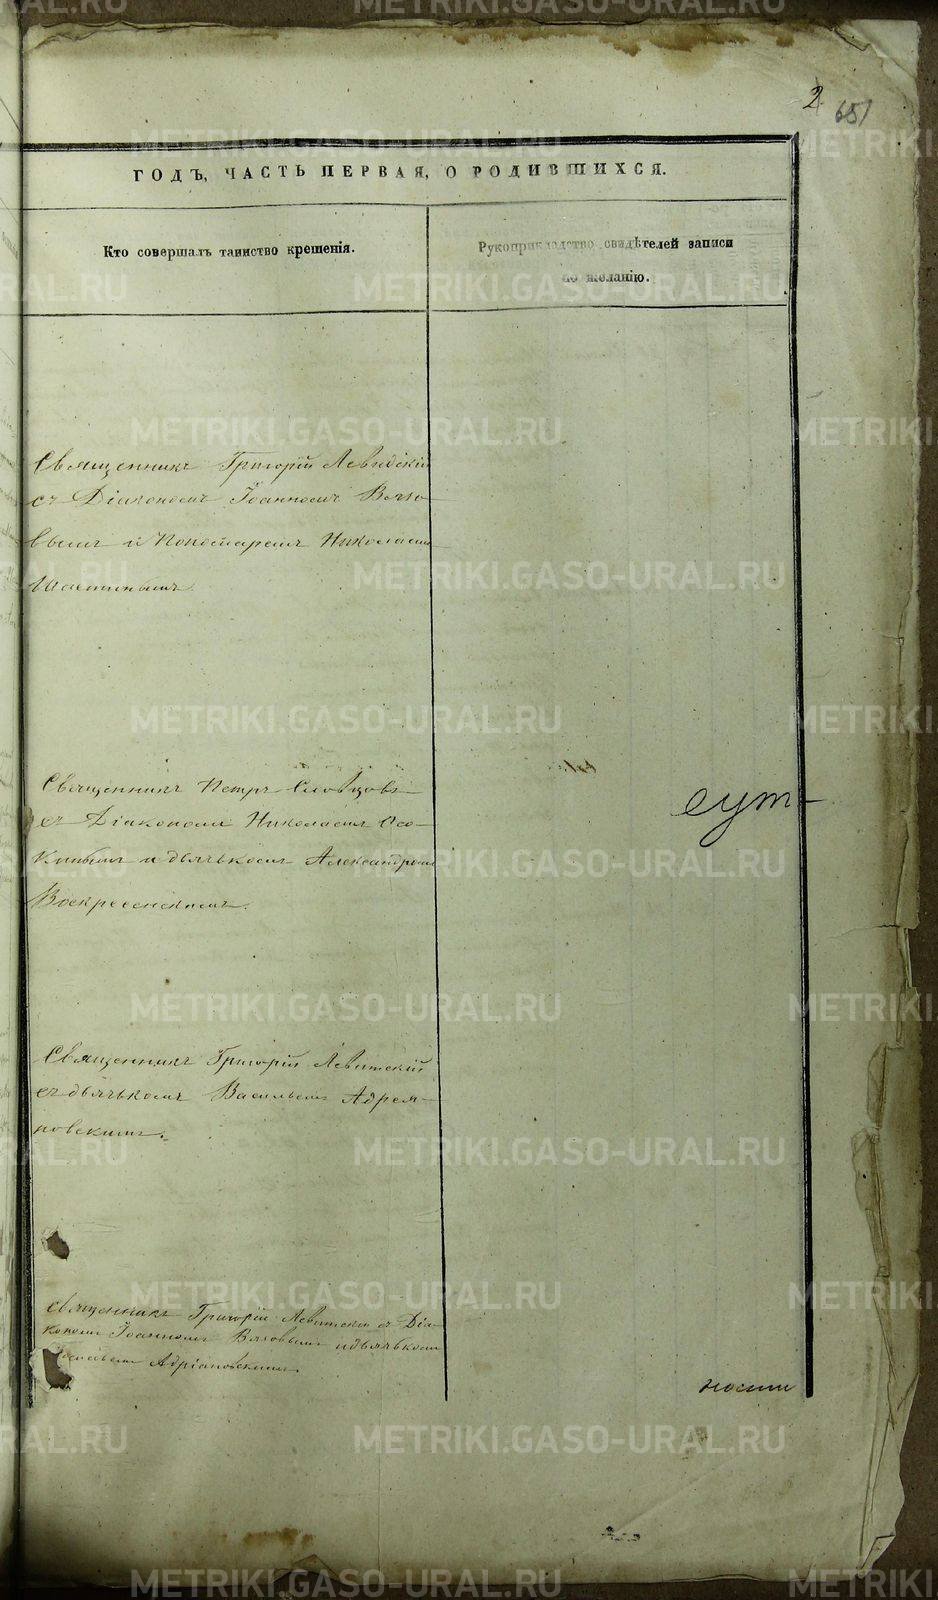 2 651
ГОДЪ, ЧАСТЬ ПЕРВАЯ, О РОДИВШИХСЯ.
Кто совершалъ таинство крещенія.
Рукоприкладство свидѣтелей записи
по желанію.
Священникъ Григорій Левидскій
съ Діакономъ Іоанномъ Вязо-
вымъ и Пономаремъ Николаемъ
Шастинымъ
Священникъ Петръ Словцовъ
съ Діакономъ Николаемъ Осо-
кинымъ и дьячькомъ Александромъ
Воскресенскимъ.
сут-
Священникъ Григорій Левитскій
съ дьячькомъ Васильемъ Адрея-
новскимъ.
Священникъ Григорій Левитскій съ Діа-
кономъ Іоанномъ Вязовымъ и дьячькомъ
Васильемъ Адріановскимъ
ности
METRIKI.GASO-URAL.RU